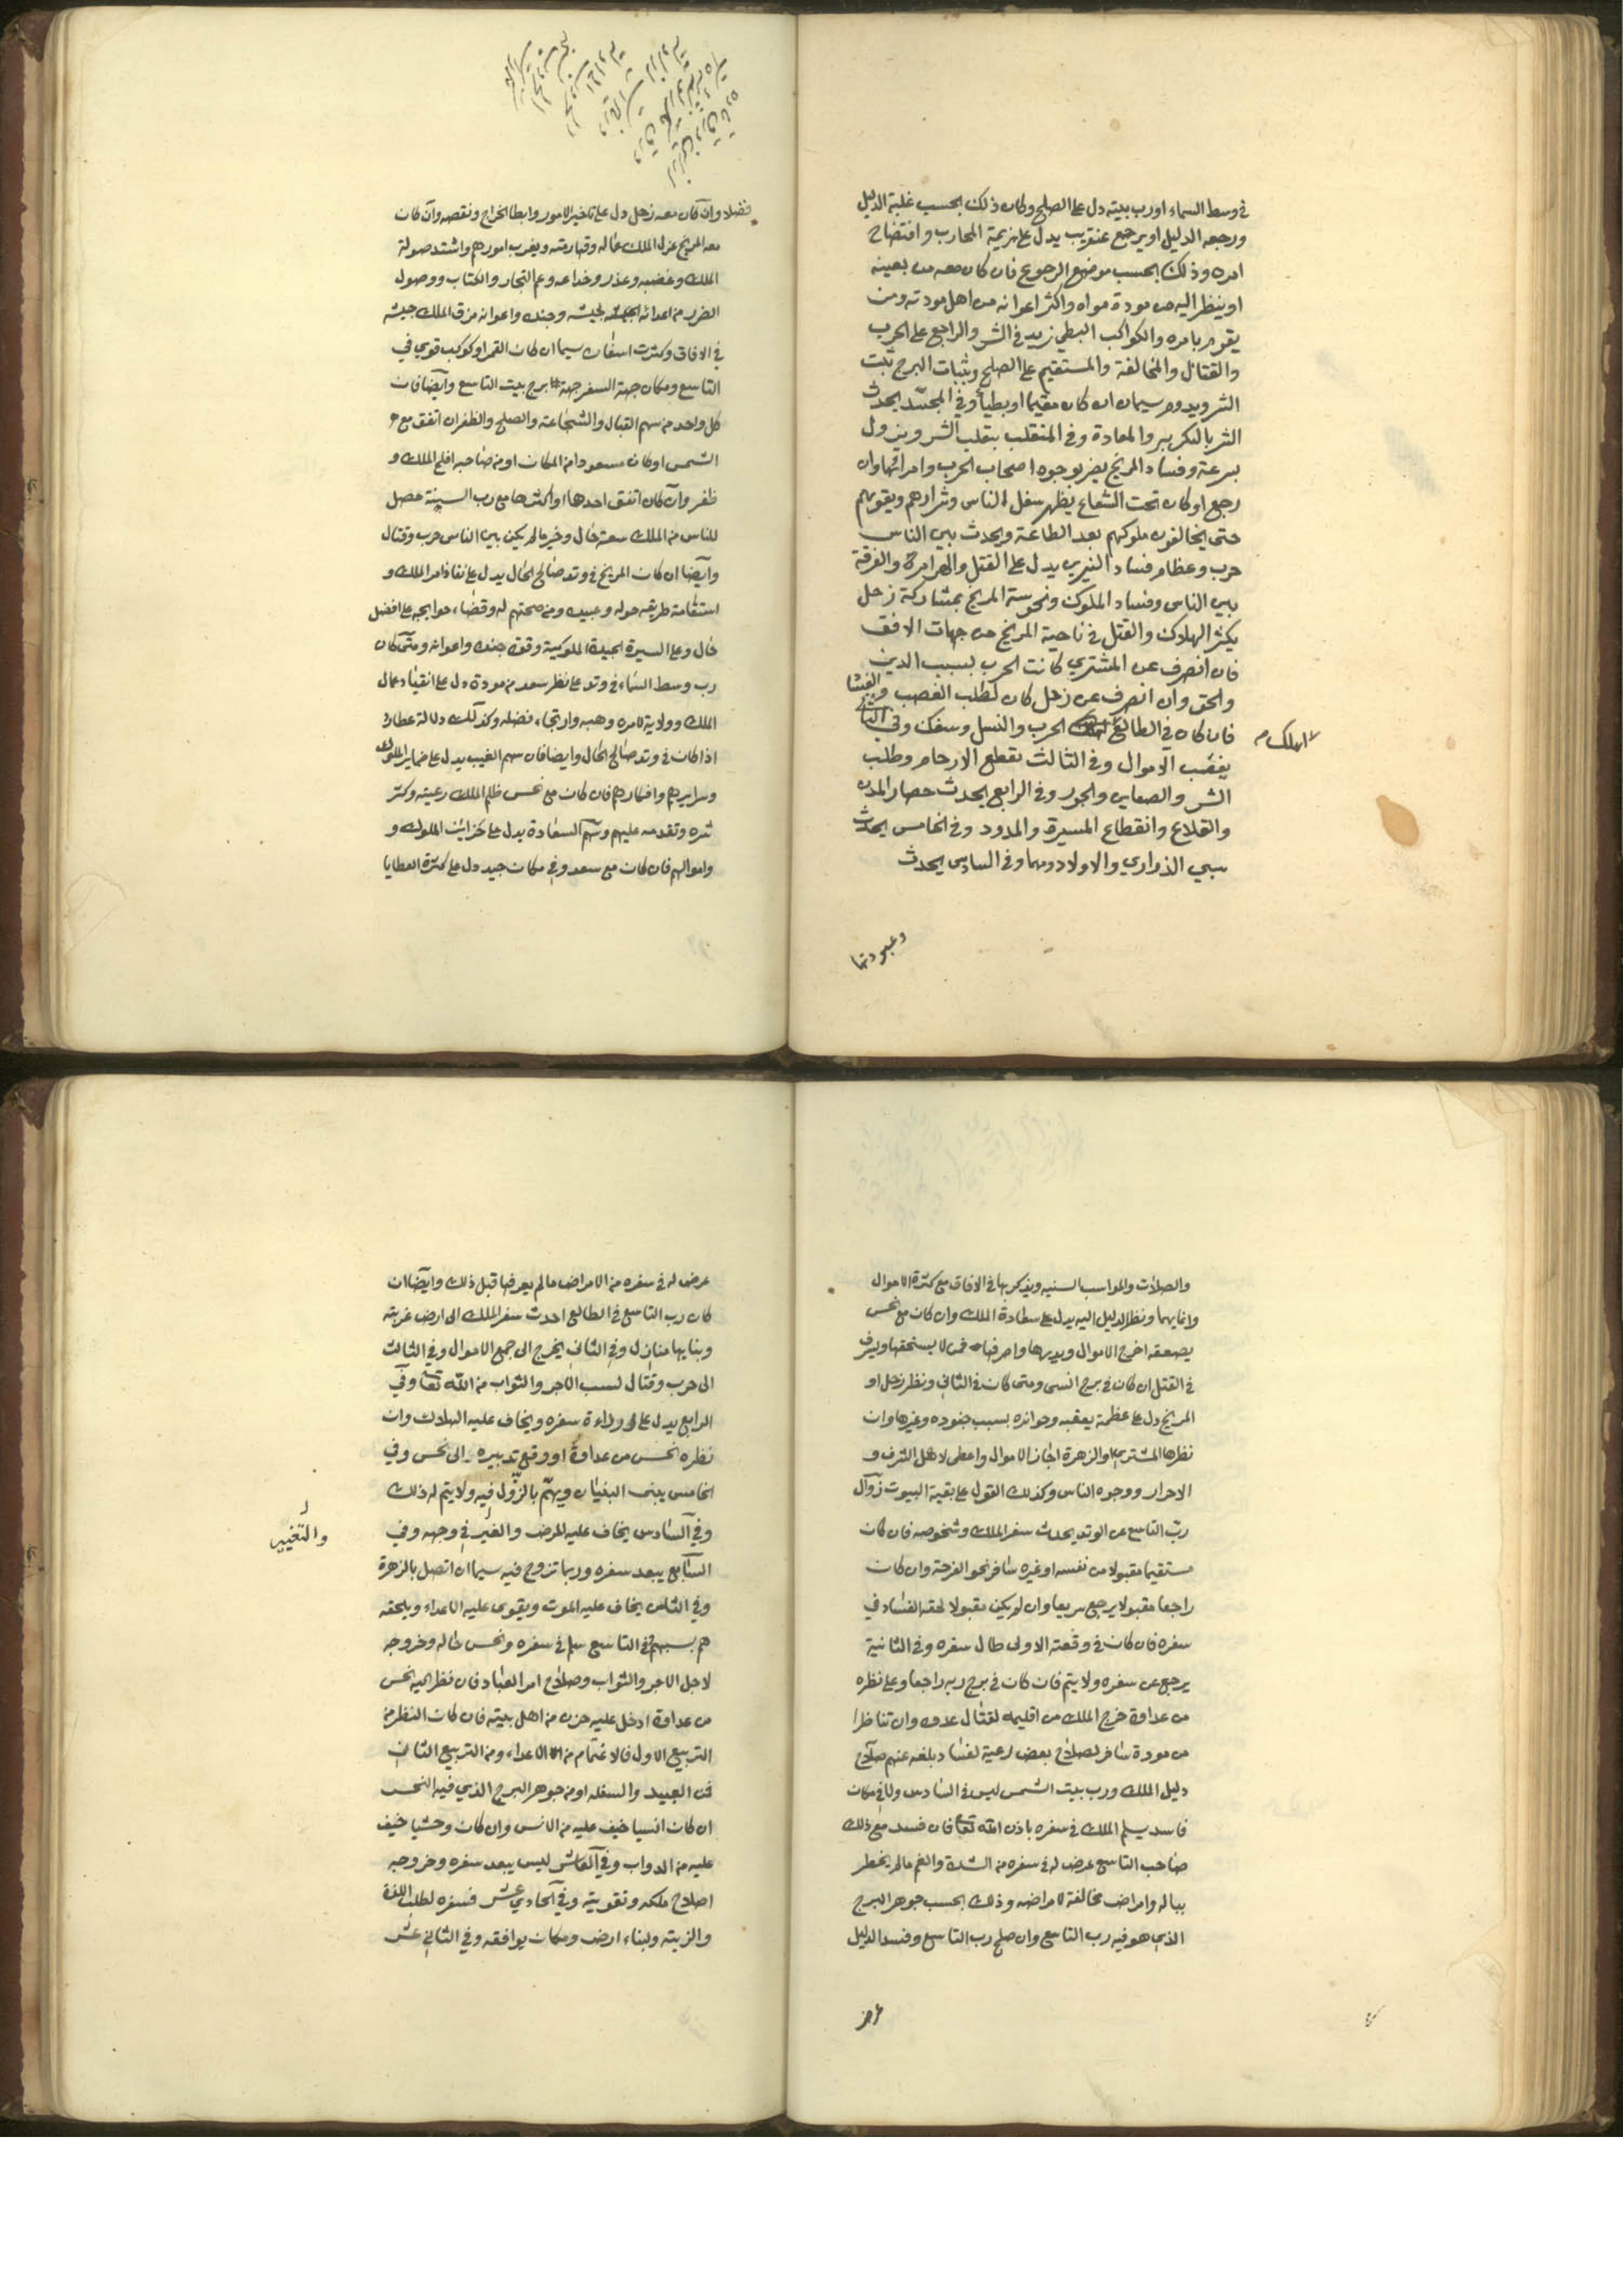 في وسط السماء اورب بيته دل على الصلح وكان ذلك بحسب غلبة الدليل
ورجعه الدليل او يرجع عنقريب يدل على هزيمة المحارب وافتضاح
امره وذلك بحسب موضع الرجوع فان كان معه من بعينه
او ينظر اليه من مودة مواه واكثر اعوانه من اهل مودته ومن
يقوم بامره والكواكب البطي يزيد في الشر والراجع على الحرب
والقتال والمخالفة والمستقيم على الصلح وبثبات البرج ثبت
الشر ويدوم سيمان ان كان مقيما او بطيأ وفي المجسد يحدث
الشر بالتكرير والمعادة وفي المنقلب بتقلب الشر ويزول
بسرعة وفساد المريخ يضر بوجوه اصحاب الحرب وامرائها وان
رجع او كان تحت الشعاع يظهر سفل الناس وشرارهم ويقويهم
حتى يخالفون ملوكهم بعد الطاعة ويحدث بين الناس
حرب وعظام فساد النيرين يدل على القتل والهرامرة والفرقة
بين الناس وفساد الملوك ونحوسة المريخ بمشاركة زحل
يكثر الهلاك والقتل في ناحية المريخ من جهات الافق
فان انصرف عن المشتري كانت الحرب بسبب الدين
والحق وان انصرف عن زحل كان لطلب الغصب والغشا
فان كان في الطالع الحرب والنسل وسفك وفي الثاني
اهلك
يغصب الاموال وفي الثالث تقطع الارحام وطلب
الشر والصعاب والجور وفي الرابع يحدث حصار المدن
والقلاع وانقطاع المسيرة والمدود وفي الخامس يحدث
سبي الذراري والاولاد ومهما وفي السادس يحدث
وعبودتها
فضلا وان كان معه زحل دل على تاخير الامور وابطا الخراج ونقصه وان كان
معه المريخ عزل الملك عماله وقهارمته ويغرب امورهم واشتد صولة
الملك وغضبه وعذر وخداعه وعم التجار والكتاب ووصول
الضرر من اعدائه لجيشه وجنده واعوانه مزق الملك جيشه
في الافاق وكثرت اسفاره سيما ان كان القمر او كوكب قوي في
التاسع ومكان جهة السفر جهة برج بيت التاسع وايضا فان
كل واحد من سهم القبال والشجاعة والصلح والظفر ان اتفق مع
الشمس او كان مسعودا من المكان او من صاحبه افلح الملك و
ظفر وان كان اتفق احدها او اكثرها مع رب السنة حصل
للناس من الملك سعة حال وخير مالم يكن بين الناس حرب وقتال
وايضا ان كان المريخ في وتد صالح الحال يدل على نفاذ امر الملك و
استقامة طريقه حوله وعبيده ومن صحتهم له وقضاء حوايجه على افضل
حال وعلى السيرة الجيدة الملوكية وقوة جنده واعوانه ومتى كان
رب وسط السماء في وتد على نظر سعد من مودة دل على انقياد عمال
الملك وولاية لامره وهبه وارتجاء فضله وكذلك دلالة عطارد
اذا كان في وتد صالح الحال وايضا فان سهم الغيب يدل على ضماير الملوك
وسرايرهم وافكارهم فان كان مع نحس ظلم الملك رعيته وكثر
شره وتقدمه عليهم وسهم السعادة يدل على خزاين الملوك و
واموالهم فان كان مع سعد وفي مكان جيد دل على كثرة العطايا
والصلات والمواسب السنيه ويذكر بها في الافاق مع كثرة الاموال
وانمايها ونظر الدليل اليه يدل على سعادة الملك وان كان مع نحس
يصعقه اخرج الاموال وبددها واصرفها فمن لا يستحقها ويسرف
في القتل ان كان في برج انسي ومتى كان في الثاني ونظر زحل او
المريخ دل على عظمة يعقبه وحوائزه بسبب جنوده وغيرها وان
نظرها المشتري او الزهرة اجاز الاموال واعطى لاهل الشرف و
الاحرار ووجوه الناس وكذلك القول على بقية البيوت زوال
رب التاسع عن الوتد يحدث سفر الملك وشخوصه فان كان
مستقيما مقبولا من نفسه او غيره سافر نحو الفرحة وان كان
راجعا مقبولا يرجع سريعا وان لم يكن مقبولا لحقه الفساد في
سفره فان كان في وقعته الاولى طال سفره وفي الثانية
يرجع عن سفره ولا يتم فان كان في برج ربه راجعا وعلى نظره
من عداوة خرج الملك من اقليمه لقتال عدوه وان تناظرا
من مودة سافر لصلاح بعض رعية لفساد بلغه عنهم صلاح
دليل الملك ورب بيت الشمس ليس في السادس ولا في مكان
فاسد يسلم الملك في سفره باذن الله تعا فان فسد مع ذلك
صاحب التاسع عرض له في سفره من الشدة والغم مالم يخطر
بباله وامراض مخالفة لامراضه وذلك بحسب جوهر البرج
الذي هو فيه رب التاسع وان صلح رب التاسع وفسد الدليل
عرض
عرض له في سفره من الامراض مالم يعرفها قبل ذلك وايضا ان
كان رب التاسع في الطالع احدث سفر الملك الى ارض غربته
وبنا بها منازل وفي الثاني يخرج الى جمع الاموال وفي الثالث
الى حرب وقتال لسبب الاجر والثواب من الله تعا وفي
الرابع يدل على رداءة سفره ويخاف عليه الهلاك وان
نظره نحس من عداوة او وقع تدبيره الى نحس وفي
الخامس يبنى البنيان ويهتم بالنزول فيه ولا يتم له ذلك
وفي السادس يخاف عليه المرض والغير في وجهه وفي
والتغيير
السابع يبعد سفره وربما تزوج فيه سيما ان اتصل بالزهرة
وفي الثامن يخاف عليه الموت ويقوى عليه الاعداء ويلحقه
هم بسببهم في التاسع سلم في سفره وحسن حاله وخروجه
لاجل الاجر والثواب وصلاح امر العباد فان نظر اليه نحس
من عداوة ادخل عليه حزن من اهل بيته فان كان النظر من
التربيع الاول فالاغتمام من الاعداء ومن التربيع الثاني
فمن العبيد والسفله او من جوهر البرج الذي فيه النحس
ان كان انسيا خيف عليه من الانس وان كان وحشيا خيف
عليه من الدواب وفي العاشر ليس يبعد سفره وخروجه
اصلاح ملكه وتقويته وفي الحادي عشر فسفره لطلب اللذة
والزينة وبناء ارض ومكان يوافقه وفي الثاني عشر